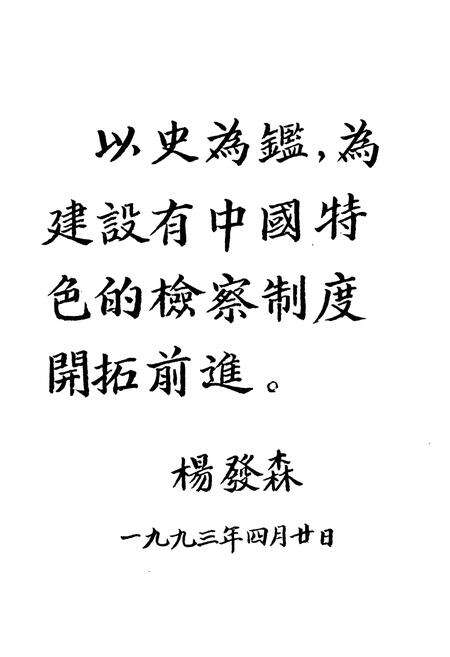 以史為鑑,為
建設有中國特
色的檢察制度
開拓前進。
楊發森
一九九三年四月廿日